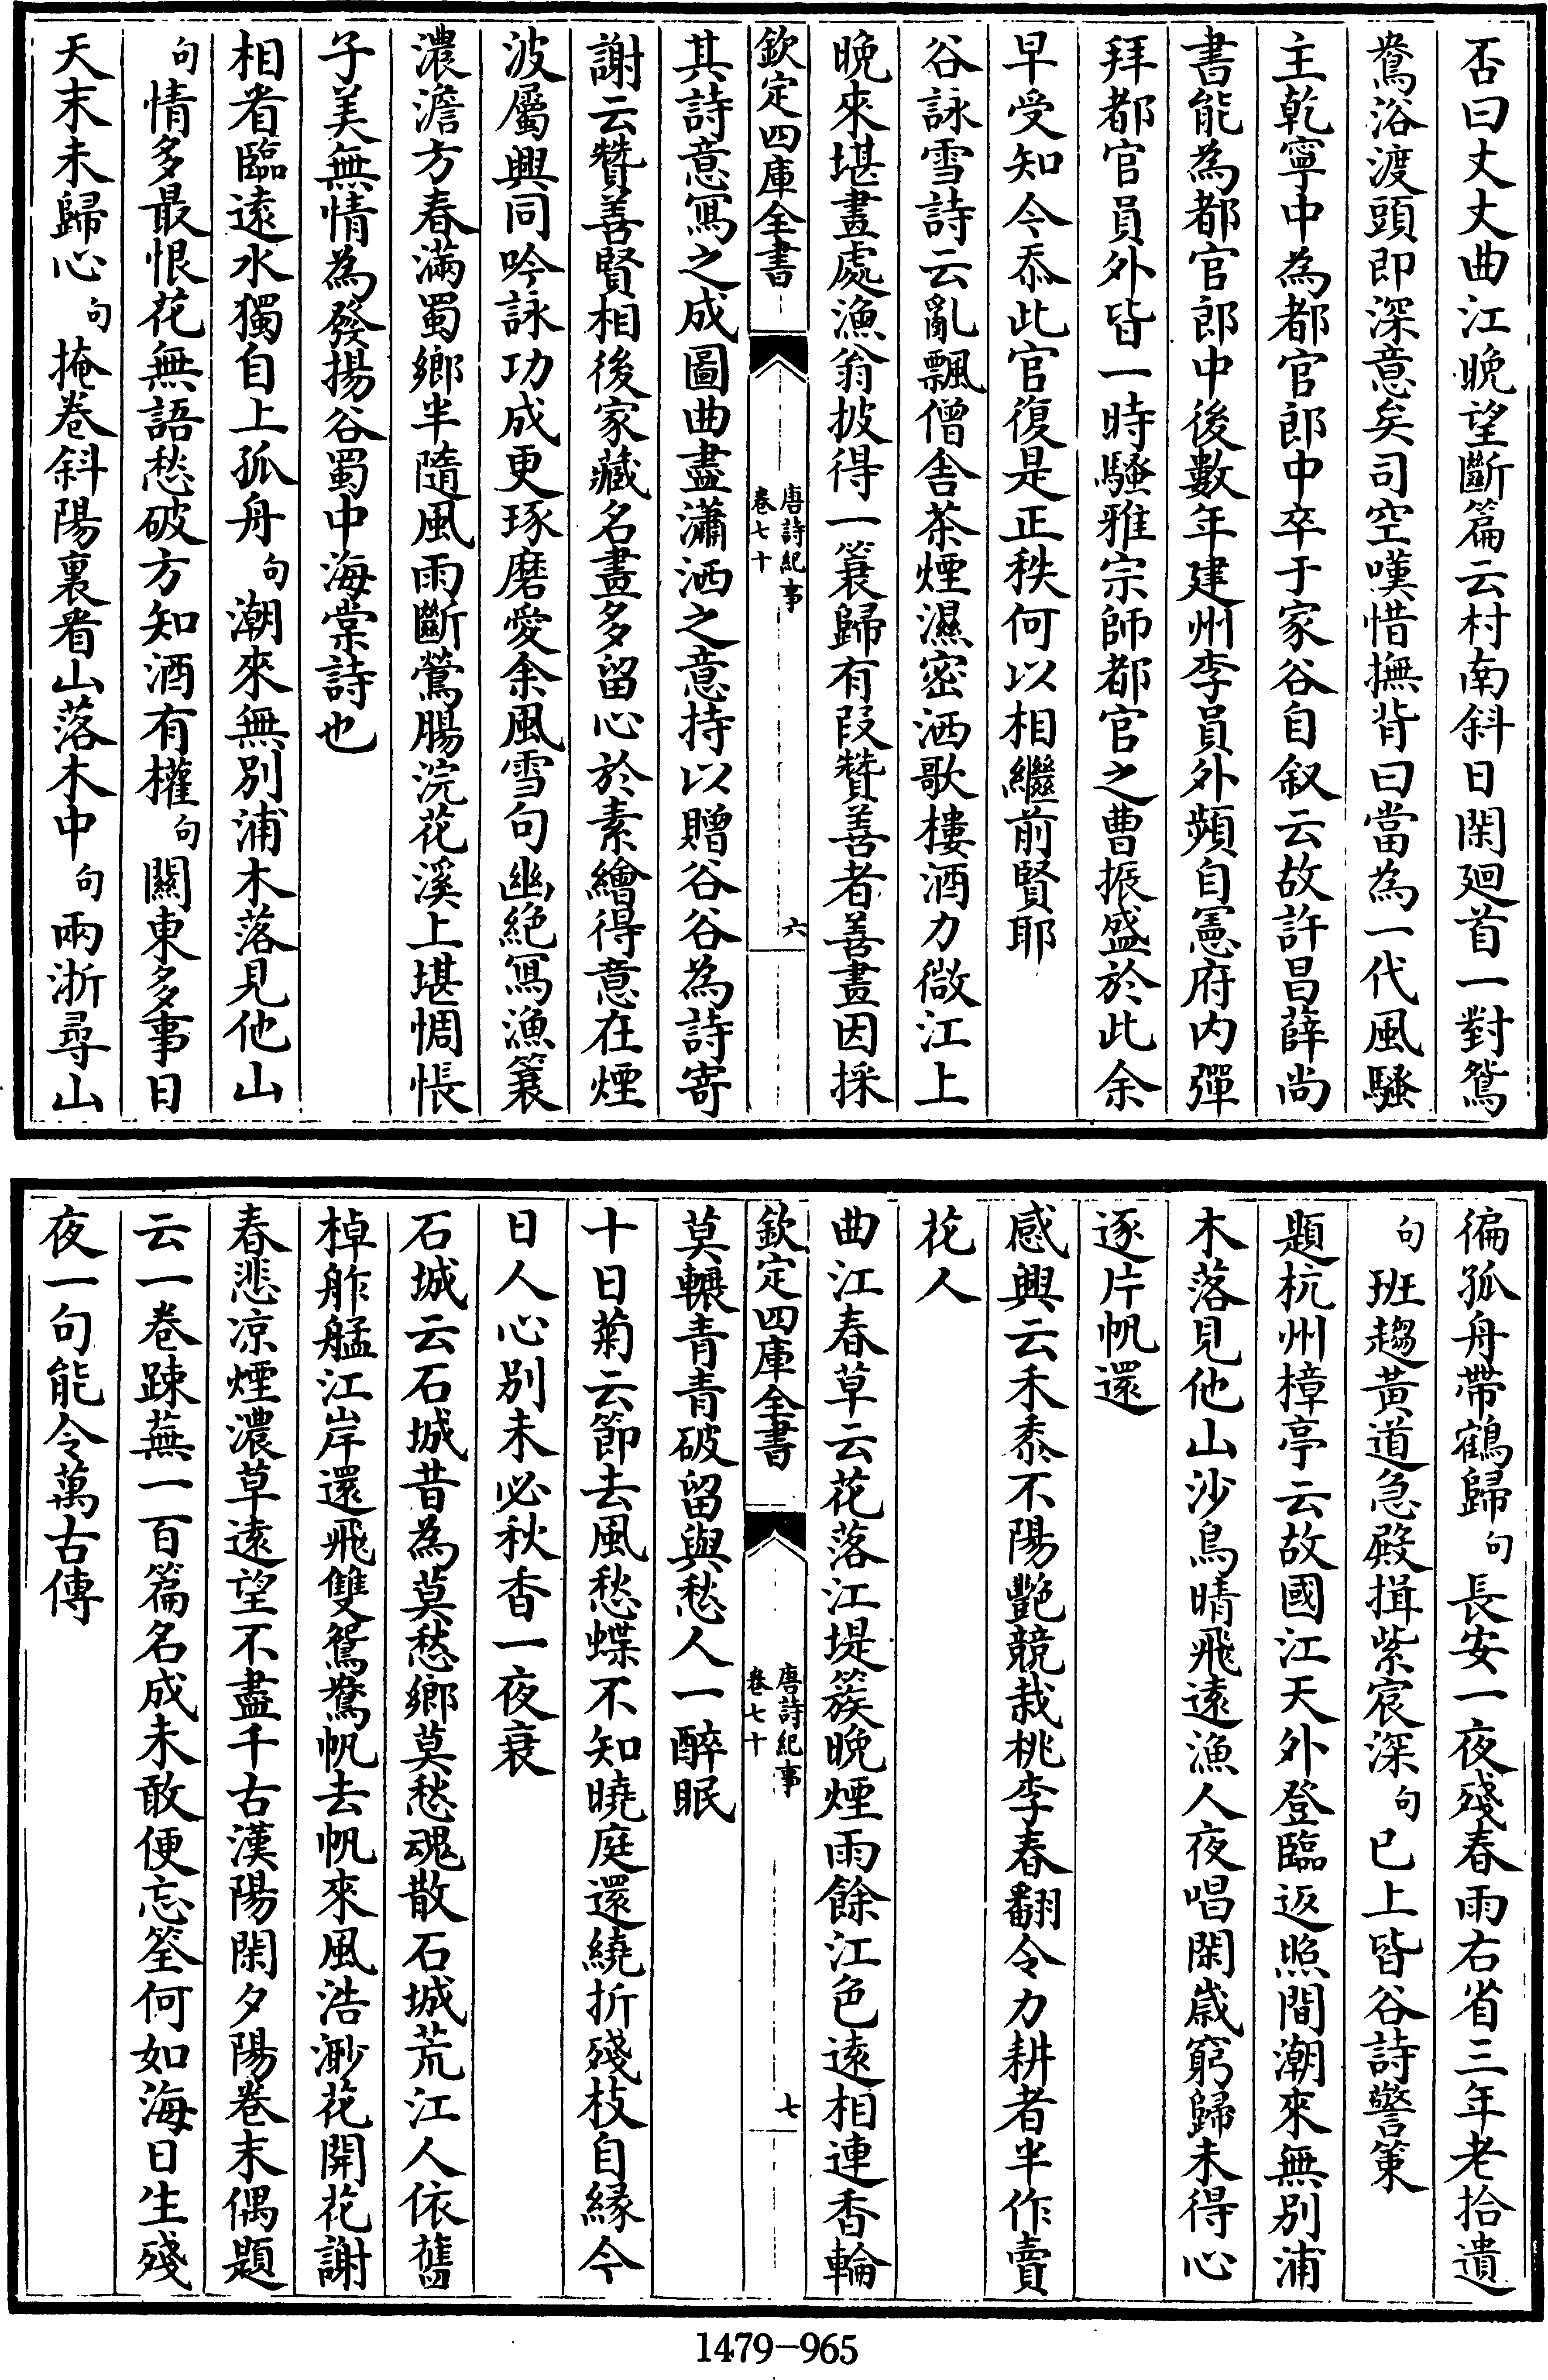 否曰丈丈曲江晚望斷篇云村南斜日閑廻首一對鴛
鴦浴渡頭即深意矣司空嘆惜撫背曰當為一代風騷
主乾寧中為都官郎中卒于家谷自叙云故許昌薛尚
書能為都官郎中後數年建州李員外頻自憲府内彈
拜都官員外皆一時騷雅宗師都官之曹振盛於此余
早受知令忝此官復是正秩何以相繼前賢耶
谷詠雪詩云亂飄僧舍茶煙濕密洒歌樓酒力微江上
晚來堪畫處漁翁披得一簑歸有叚贊善者善畫因採
欽定四庫全書
唐詩紀事
卷七十
六
其詩意寫之成圖曲盡瀟洒之意持以贈谷谷為詩寄
謝云贊善賢相後家藏名畫多留心於素繪得意在煙
波屬興同吟詠功成更琢磨愛余風雪句幽絕寫漁簑
濃澹方春滿蜀鄉半隨風雨斷鶯腸浣花溪上堪惆悵
子美無情為發揚谷蜀中海棠詩也
相㸔臨遠水獨自上孤舟句潮來無別浦木落見他山
句情多最恨花無語愁破方知酒有權句關東多事日
天末未歸心句掩卷斜陽裏㸔山落木中句兩浙尋山
徧孤舟帶鶴歸句長安一夜殘春雨右省三年老拾遺
句班趨黃道急殿揖紫宸深句已上皆谷詩警策
題杭州樟亭云故國江天外登臨返照間潮來無別浦
木落見他山沙鳥晴飛遠漁人夜唱閑歲窮歸未得心
逐片帆還
感興云禾黍不陽艷競栽桃李春翻令力耕者半作賣
花人
曲江春草云花落江堤簇晚煙雨餘江色遠相連香輪
欽定四庫全書
唐詩紀事
卷七十
七
莫輾青青破留與愁人一醉眠
十日菊云節去風愁蝶不知曉庭還繞折殘枝自緣今
日人心別未必秋香一夜衰
石城云石城昔為莫愁鄉莫愁魂散石城荒江人依舊
棹舴艋江岸還飛雙鴛鴦帆去帆來風浩渺花開花謝
春悲凉煙濃草遠望不盡千古漢陽閑夕陽卷末偶題
云一卷踈蕪一百篇名成未敢便忘筌何如海日生殘
夜一句能令萬古傳
1479-965